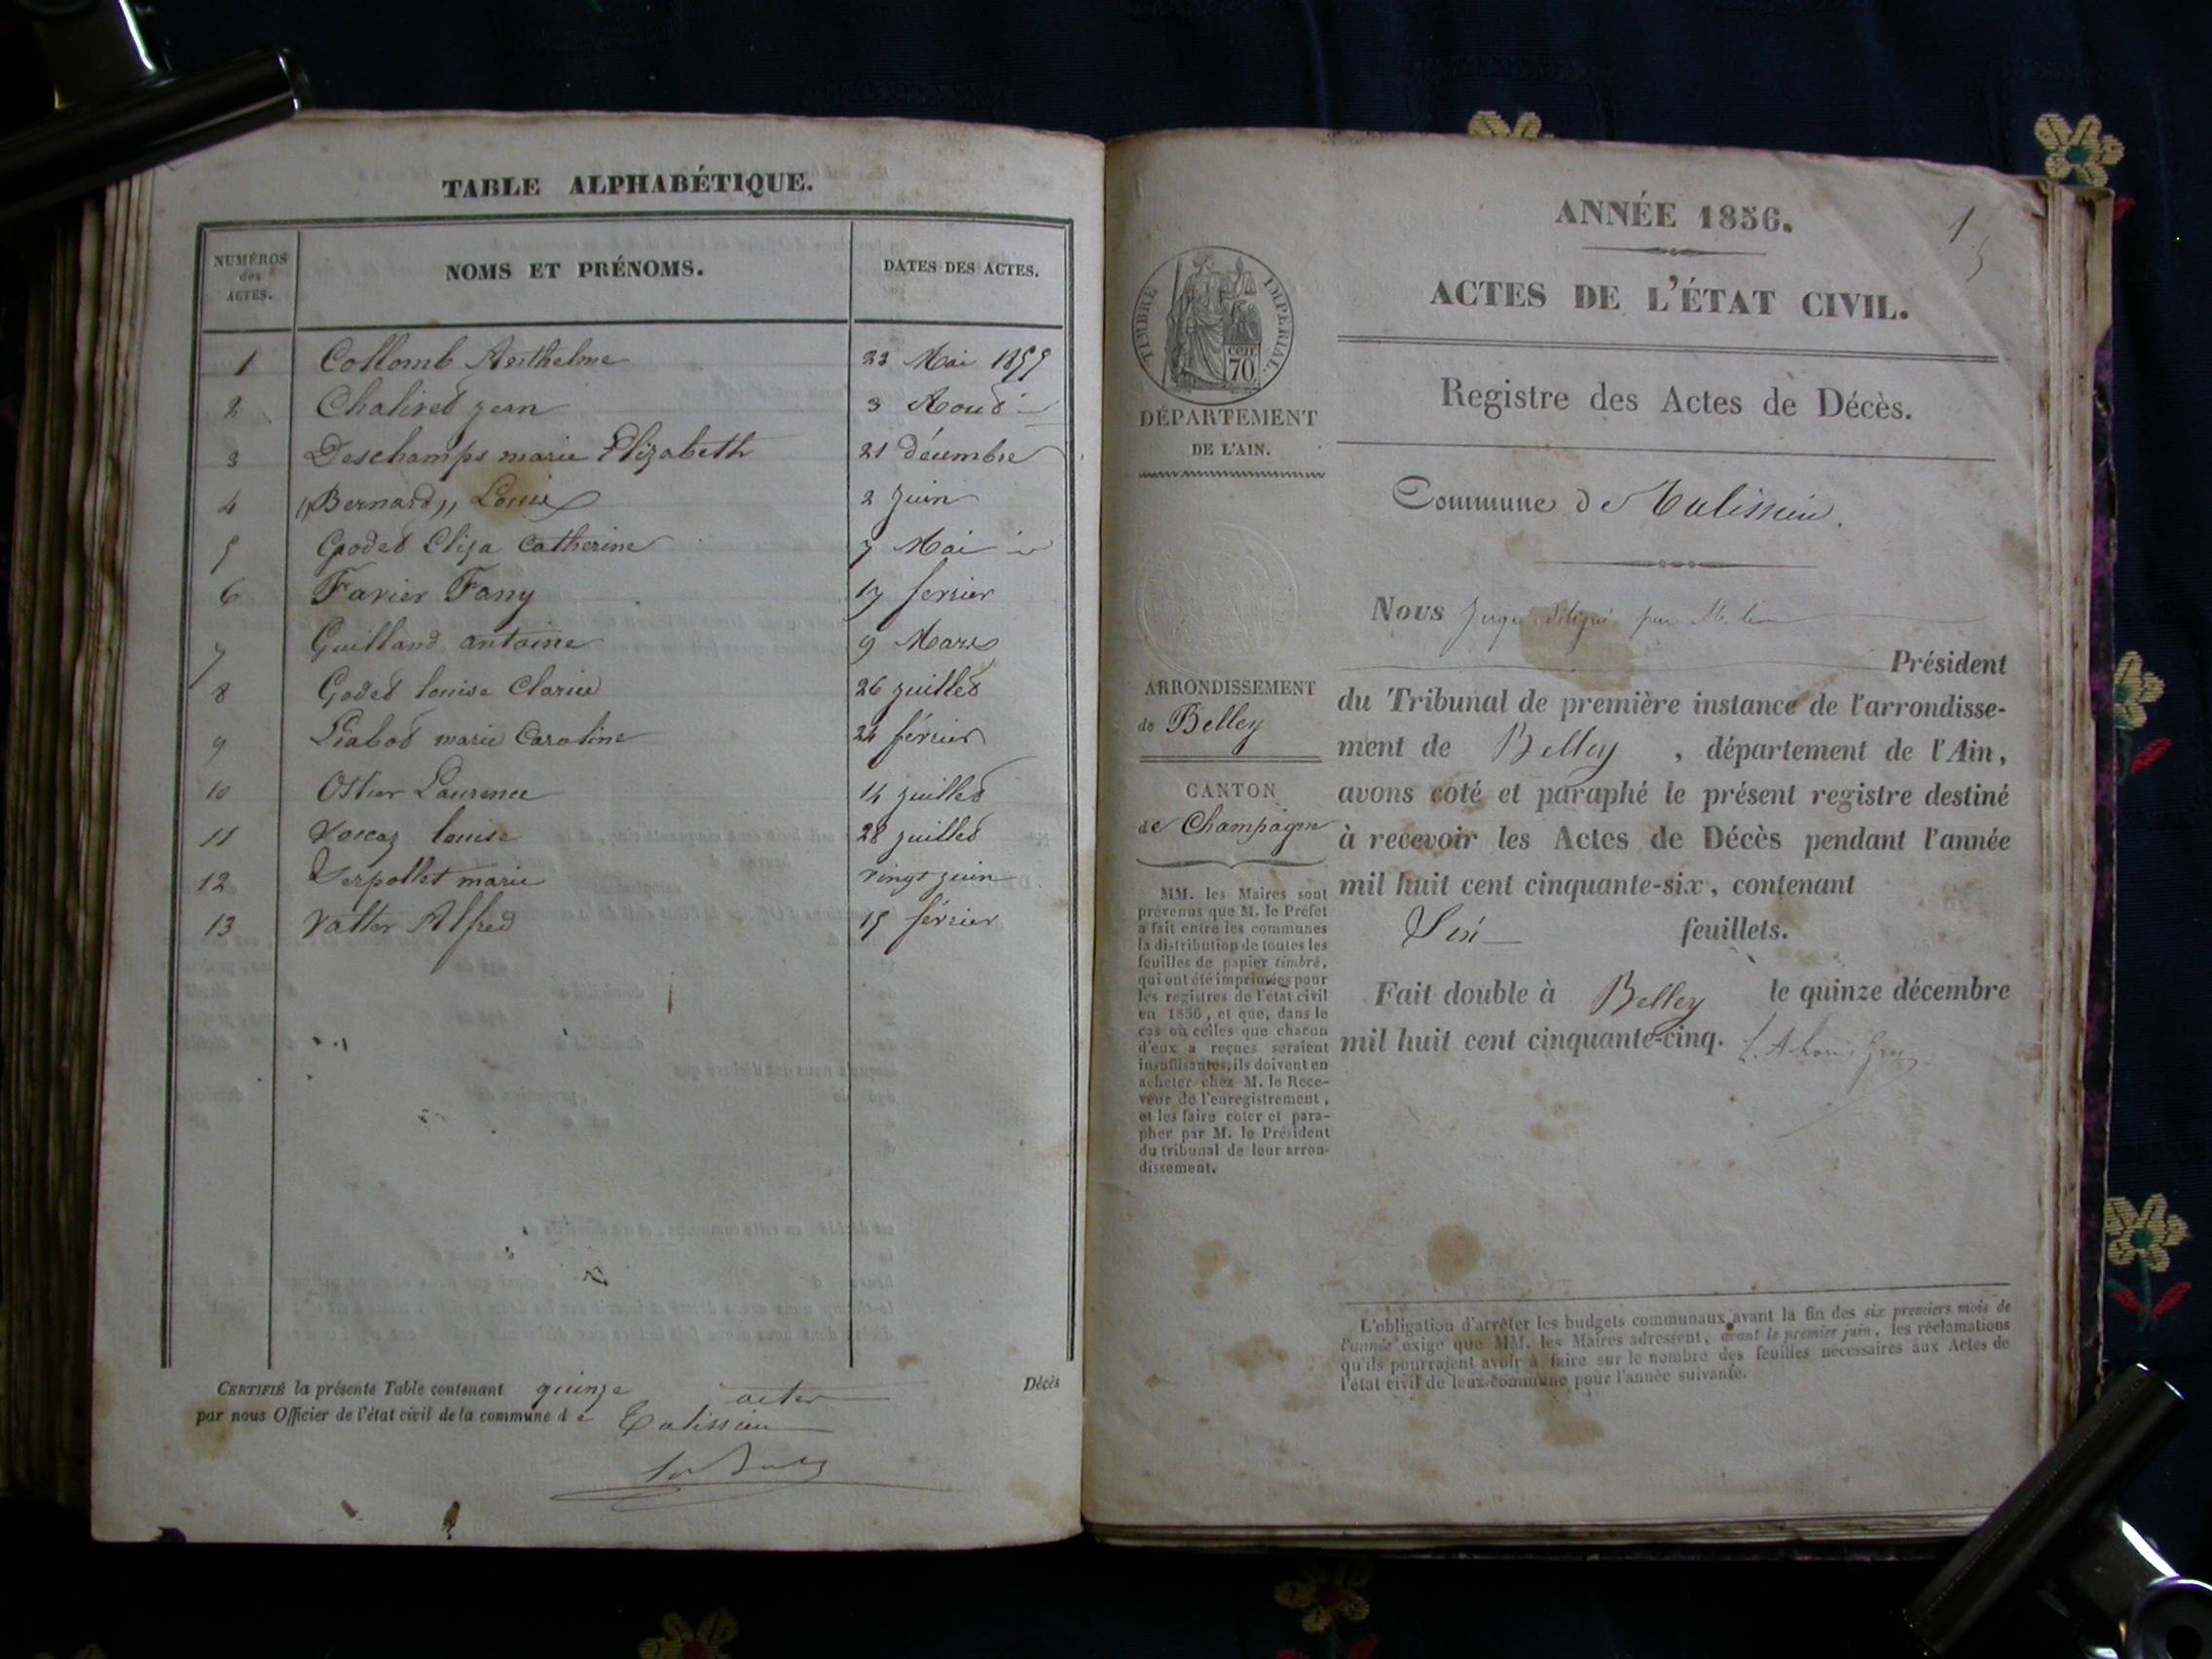 TABLE ALPHABÉTIQUE.
NUMÉROS des ACTES.
NOMS ET PRÉNOMS.
DATES DES ACTES.
1 Collomb Anthelme 23 Mai 1855
2 Chaliret jean 3 Aout
3 Deschamps marie Elizabeth 21 décembre
4 "Bernard" Louis 2 juin
5 Godet Eliza Catherine 7 Mai
6 Favier Fany 17 fevrier
7 Guilland antoine 9 Mars
8 Godet louise Clarice 26 juillet
9 marie Caroline 24 février
10 Ostier Laurence 14 juillet
11 louise 28 juillet
12 Serpollet marie vingt juin
13 Vatter Alfred 15 février
CERTIFIÉ la présente Table contenant quinze actes
par nous Officier de l'état civil de la commune de Talissieu
Décès
1
ANNÉE 1856.
ACTES DE L'ÉTAT CIVIL.
Registre des Actes de Décès.
TIMBRE IMPERIAL.
cen
70
DÉPARTEMENT
DE L'AIN.
ARRONDISSEMENT
de Belley
CANTON
de Champagne
MM. les Maires sont
prévenus que M. le Préfet
a fait entre les communes
la distribution de toutes les
feuilles de papier timbré,
qui ont été imprimées pour
les registres de l'état civil
en 1856, et que, dans le
cas où celles que chacun
d'eux a reçues seraient
insuffisantes, ils doivent en
acheter chez M. le Rece-
veur de l'enregistrement,
et les faire coter et para-
pher par M. le Président
du tribunal de leur arron-
dissement.
Commune de Talissieu.
Nous juge délégué par M. le
Président
du Tribunal de première instance de l'arrondisse-
ment de Belley, département de l'Ain,
avons coté et paraphé le présent registre destiné
à recevoir les Actes de Décès pendant l'année
mil huit cent cinquante-six, contenant
Six feuillets.
Fait double à Belley le quinze décembre
mil huit cent cinquante-cinq.
L'obligation d'arrêter les budgets communaux avant la fin des six premiers mois de
l'année exige que MM. les Maires adressent, avant le premier juin, les réclamations
qu'ils pourraient avoir à faire sur le nombre des feuilles nécessaires aux Actes de
l'état civil de leur commune pour l'année suivante.